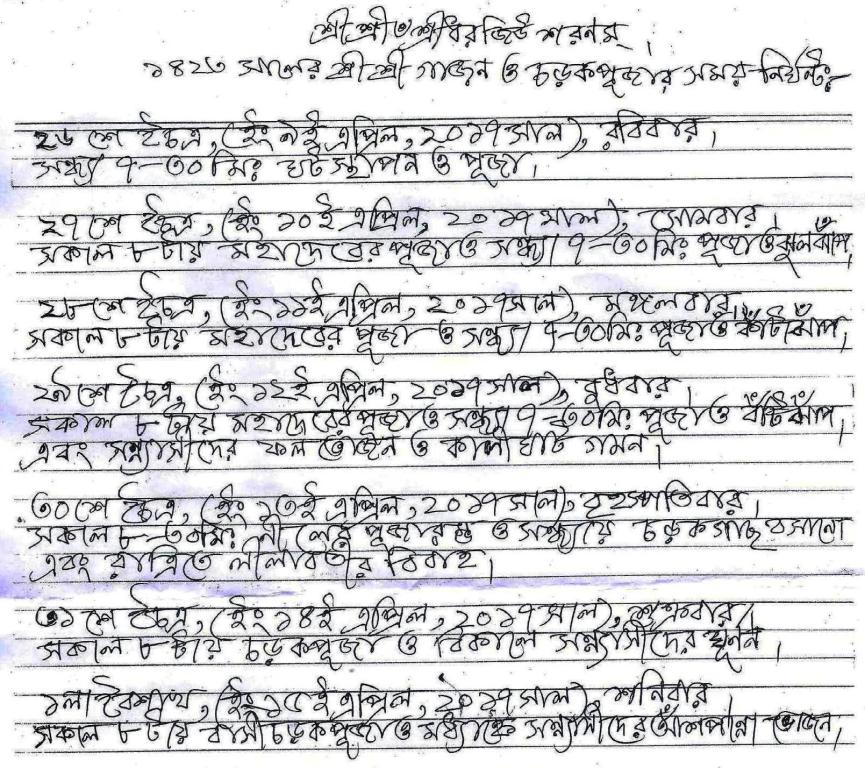 শ্রীশ্রী৺শ্রীধরজিউ শরণম্।
১৪২৩ সালের শ্রীশ্রী গাজন ও চড়কপূজার সময় নির্ঘন্টঃ-
২৬ শে চৈত্র, (ইং ৯ই এপ্রিল, ২০১৭ সাল), রবিবার,
সন্ধ্যা ৭-৩০ মিঃ ঘট স্থাপন ও পূজা।
২৭ শে চৈত্র, (ইং ১০ই এপ্রিল, ২০১৭ সাল), সোমবার,
সকাল ৮ টায় মহাদেবের পূজা ও সন্ধ্যা ৭-৩০ মিঃ পূজা ও ঝুলঝাঁপ,
২৮ শে চৈত্র, (ইং ১১ই এপ্রিল, ২০১৭ সাল), মঙ্গলবার,
সকাল ৮ টায় মহাদেবের পূজা ও সন্ধ্যা ৭-৩০ মিঃ পূজা ও কাঁটাঝাঁপ,
২৯ শে চৈত্র, (ইং ১২ই এপ্রিল, ২০১৭ সাল), বুধবার,
সকাল ৮ টায় মহাদেবের পূজা ও সন্ধ্যা ৭-৩০ মিঃ পূজা ও বঁটিঝাঁপ,
এবং সন্ন্যাসীদের ফল ভোজন ও কালীঘাট গমন।
৩০ শে চৈত্র, (ইং ১৩ই এপ্রিল, ২০১৭ সাল), বৃহস্পতিবার,
সকাল ৮-৩০ মিঃ নীলের পূজারম্ভ ও সন্ধ্যায় চড়ক গাছ বসানো
এবং রাত্রিতে লীলাবতীর বিবাহ।
৩১ শে চৈত্র, (ইং ১৪ই এপ্রিল, ২০১৭ সাল), শুক্রবার,
সকাল ৮ টায় চড়কপূজা ও বিকালে সন্ন্যাসীদের ঘূর্নন,
১লা বৈশাখ, (ইং ১৫ই এপ্রিল, ২০১৭ সাল), শনিবার,
সকাল ৮ টায় বাসী চড়কপূজা ও মধ্যাহ্নে সন্ন্যাসীদের আঁশপান্না ভোজন,